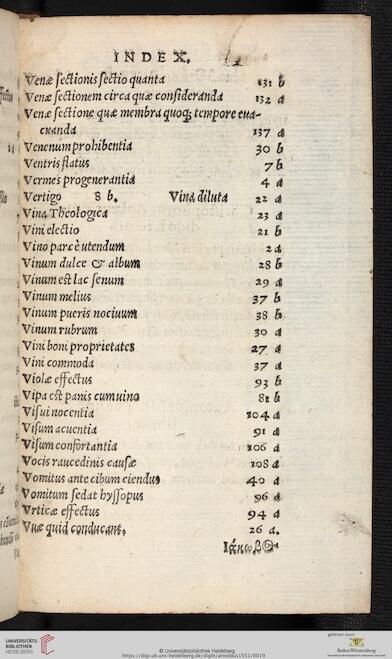 INDEX.
Venæ sectionis sectio quanta 131 b
Venæ sectionem circa quæ consideranda 132 a
Venæ sectione quæ membra quoq; tempore eua-
cuanda 137 a
Venenum prohibentia 30 b
Ventris flatus 7 b
Vermes progenerantia 4 a
Vertigo 8 b. Vina diluta 22 a
Vina Theologica 23 a
Vini electio 21 b
Vino parcè utendum 2 a
Vinum dulce & album 28 b
Vinum est lac senum 29 a
Vinum melius 37 b
Vinum pueris nociuum 38 b
Vinum rubrum 30 a
Vini boni proprietates 27 a
Vini commoda 37 a
Violæ effectus 93 b
Vipa est panis cum uino 81 b
Visui nocentia 104 a
Visum acuentia 91 a
Visum confortantia 106 a
Vocis raucedinis causæ 108 a
Vomitus ante cibum ciendus 40 a
Vomitum sedat hyssopus 96 a
Vrticæ effectus 94 a
Vuæ quid conducant. 26 a.
UNIVERSITÄTS-
BIBLIOTHEK
HEIDELBERG
© Universitätsbibliothek Heidelberg
https://digi.ub.uni-heidelberg.de/diglit/arnoldus1551/0019
gefördert durch
Baden-Württemberg